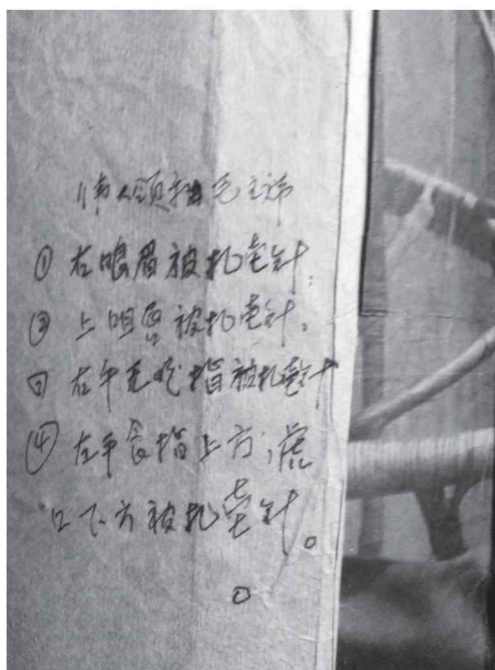 伟人领袖毛主席
① 右眼眉被扎毫针.
② 上咀唇被扎毫针。
③ 右手无名指被扎毫针
④ 左手食指上方,虎
口下方被扎毫针。